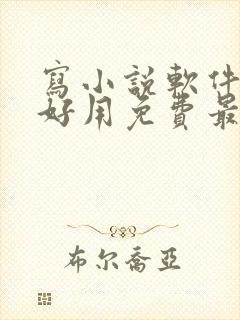 寫小說軟件
好用免費最
布尔喬亞